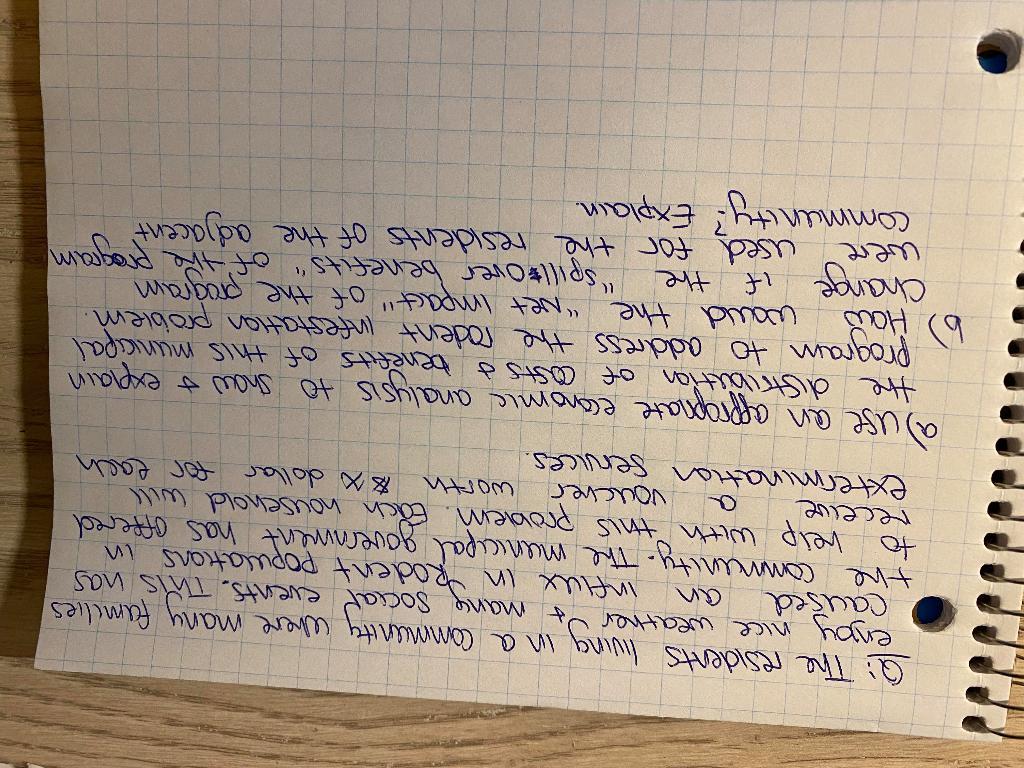 Q: The residents living in a community where many families
enjoy nice weather & many social events. This has
caused an influx in Rodent populations in
the community. The municipal government has offered
to help with this problem. Each household will
receive a voucher worth $x dollar for each
extermination services.
a) Use an appropriate economic analysis to show & explain
the distribution of costs & benefits of this municipal
program to address the rodent infestation problem.
b) How would the "net impact" of the program
change if the "spill over benefits" of the program
were used for the residents of the adjacent
community? Explain.